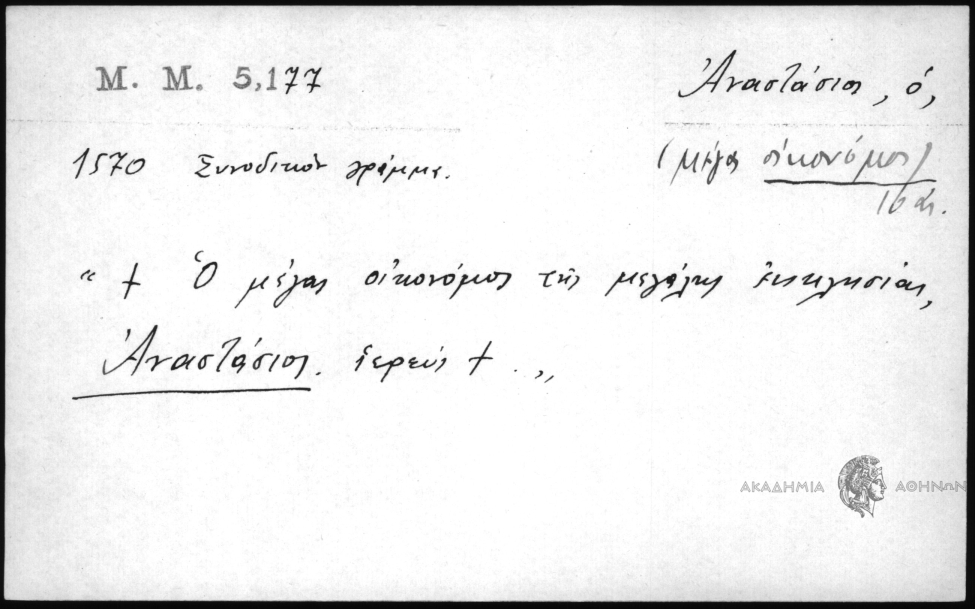 Μ. Μ. 5,177
Ἀναστάσιος, ὁ,
1570 Συνοδικὸν γράμμα.
(μέγας οἰκονόμος)
16 αἰ.
“ † Ὁ μέγας οἰκονόμος τῆς μεγάλης ἐκκλησίας,
Ἀναστάσιος. ἱερεύς † . „
ΑΚΑΔΗΜΙΑ ΑΘΗΝΩΝ